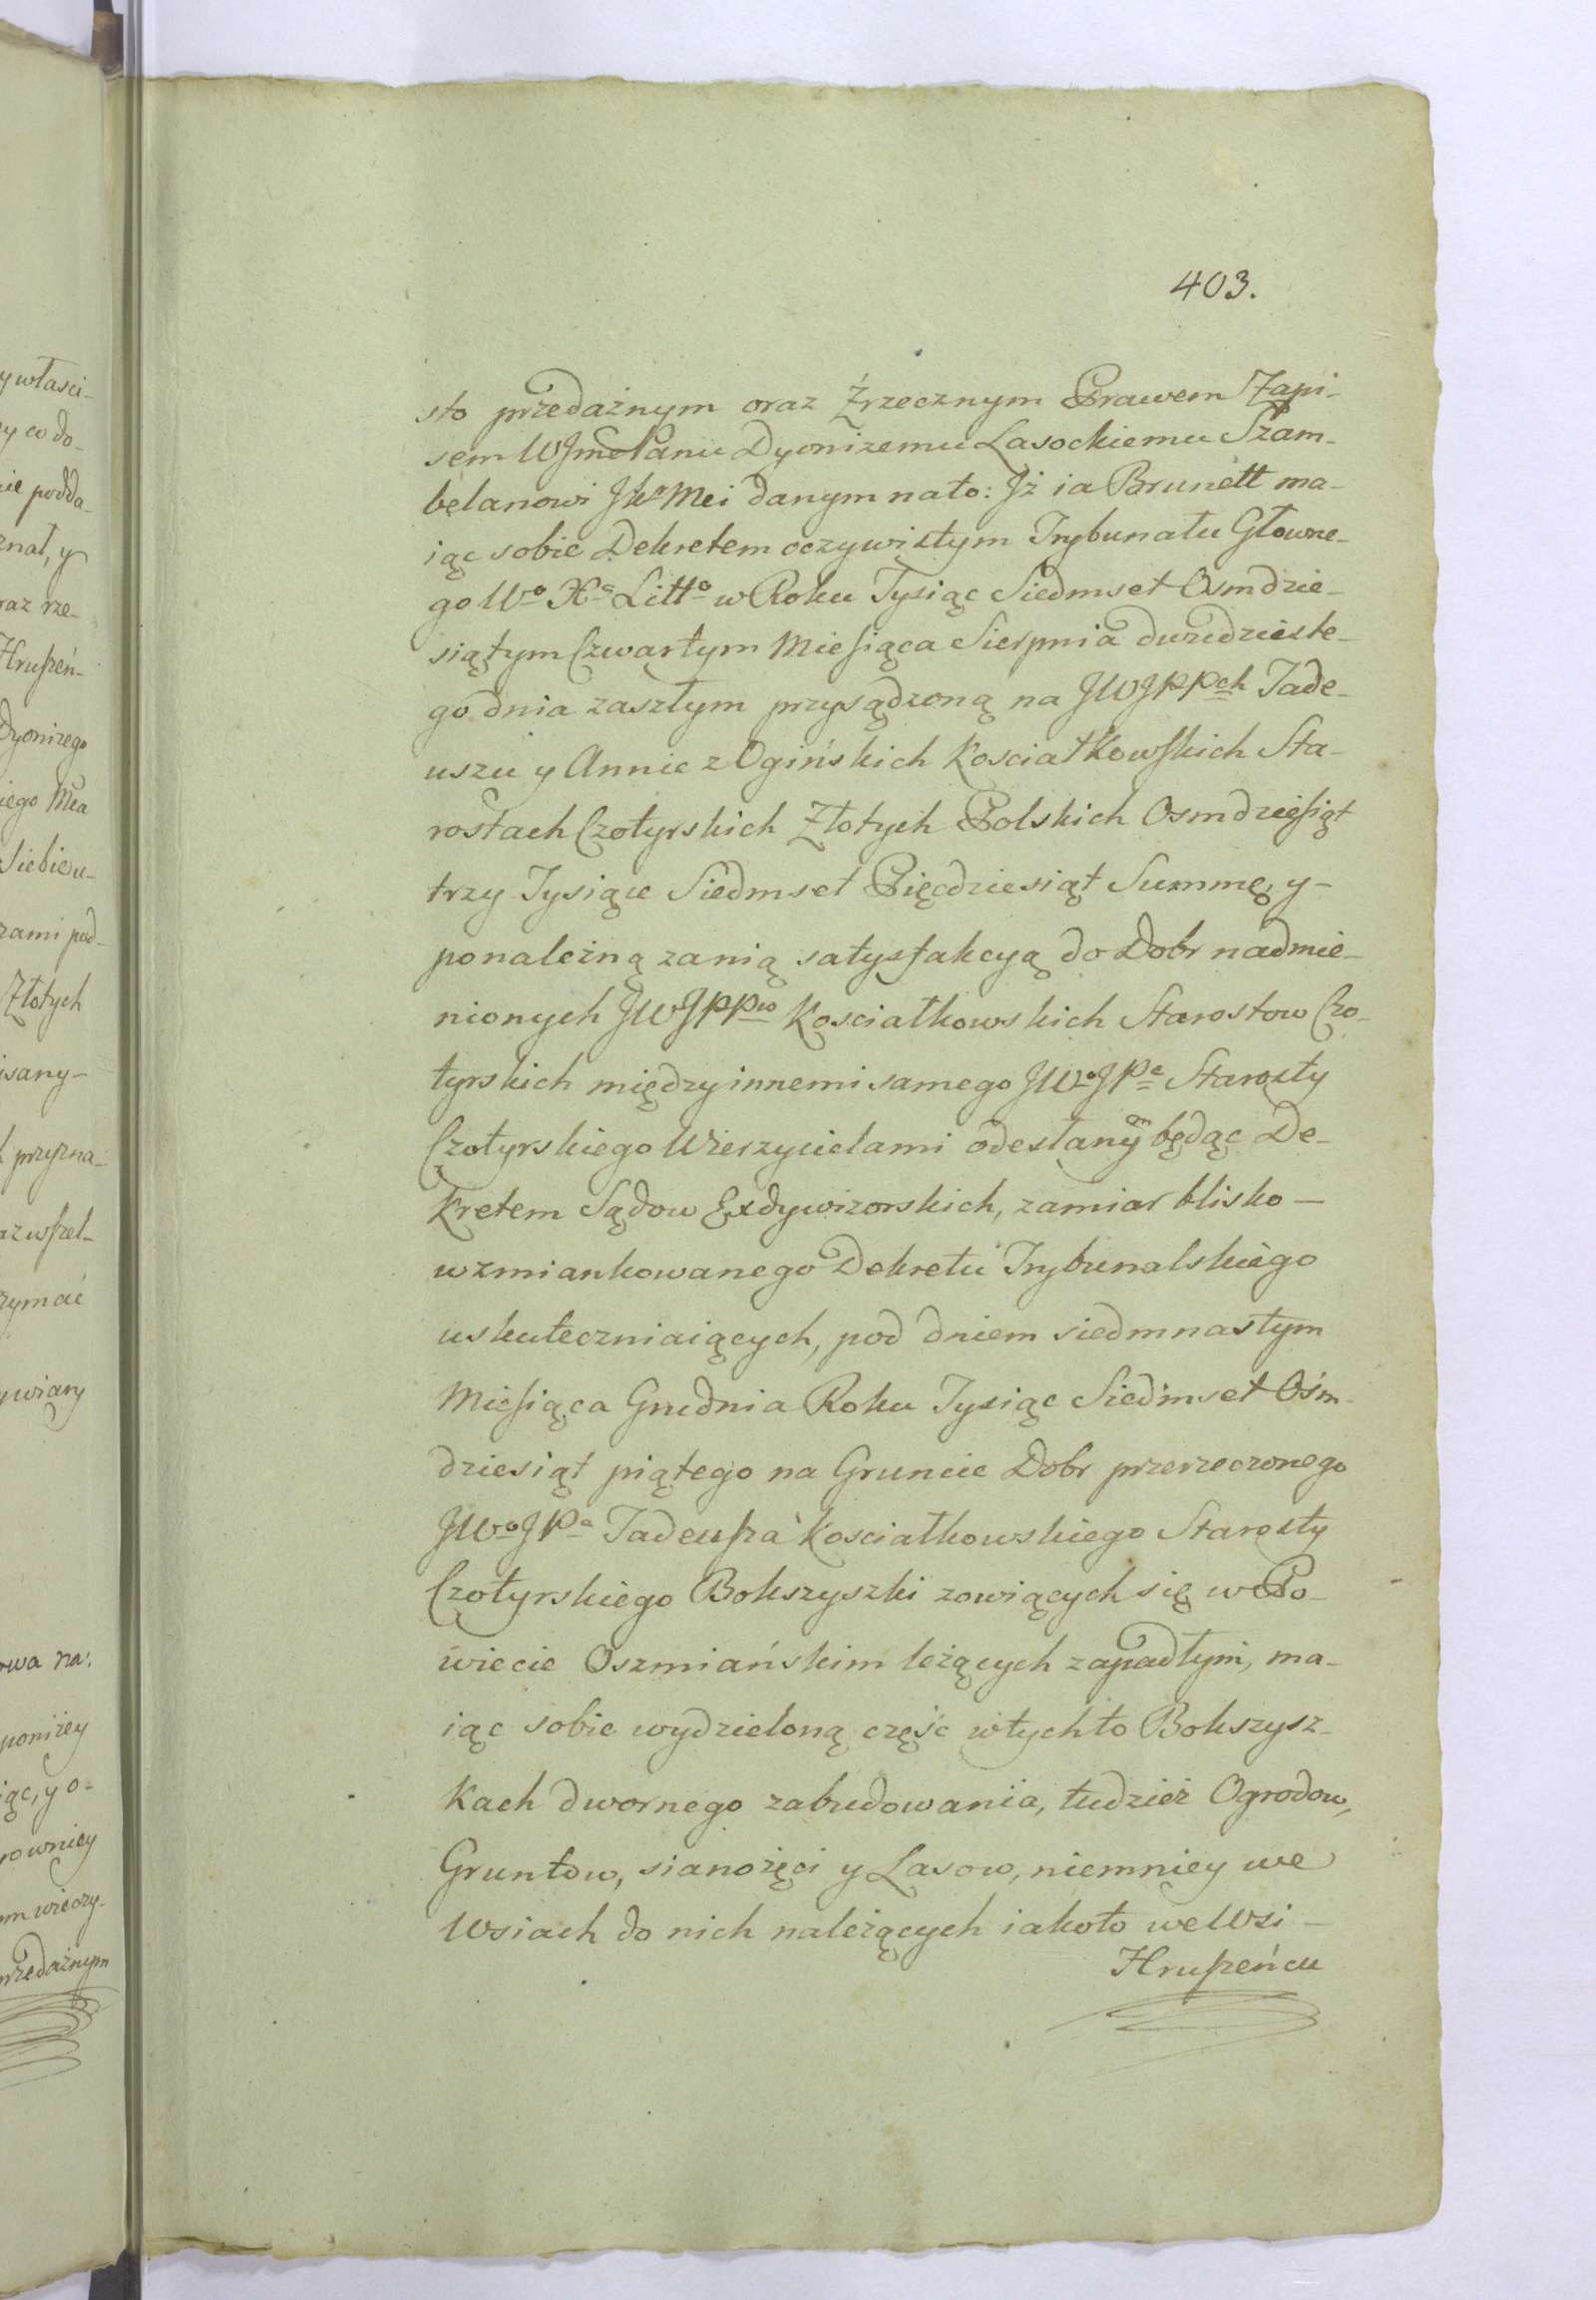 403.
sto przedażnym oraz Zrzecznym Prawem Zapi-
sem WJmć Panu Dyonizemu Lasockiemu Szam-
belanowi JKo Mci danym nato: Jż ia Brunett ma-
iąc sobie Dekretem oczywistym Trybunału Głowne-
go Wo Xa Litto w Roku Tysiąc Siedmset Osmdzie-
siątym Czwartym Miesiąca Sierpnia dwudzieste-
go dnia zaszłym przysądzoną na JWJPPch Tade-
uszu y Annie z Ogińskich Kosciałkowskich Sta-
rostach Czotyrskich Złotych Polskich Osmdziesiąt
trzy Tysiące Siedmset Pięcdziesiąt Summę, y-
ponależną zanią satysfakcyą do Dobr nadmie-
nionych JWJPPow Kosciałkowskich Starostow Czo-
tyrskich między innemi samego JWoJPa Starosty
Czotyrskiego Wierzycielami odesłanym będąc De-
kretem Sądow Exdywizorskich, zamiar blisko-
wzmiankowanego Dekretu Trybunalskiego
uskuteczniaiących, pod dniem siedmnastym
Miesiąca Grudnia Roku Tysiąc Siedmset Ośm-
dziesiąt piątego na Gruncie Dobr przerzeczonego
JWoJPa Tadeusza Kosciałkowskiego Starosty
Czotyrskiego Bokszyszki zowiących się w Po-
wiecie Oszmiańskim leżących zapadłym, ma-
iąc sobie wydzieloną częśc w tychto Bokszysz-
kach dwornego zabudowania, tudzież Ogrodow,
Gruntow, sianożęci y Lasow, niemniey we
Wsiach do nich należących iakoto we Wsi-
Hruszeńcu
ywłasci-
y co do-
ie podda-
znał, y
raz rze-
Hruszeń-
Dyonizego
iego Mca
Siebie u-
zami pod-
Złotych
isany-
przyzna-
az wszel-
zymać
ywiary
wa na:
poniżey
iąc, y o-
rowniey
m wieczy-
przedażnym